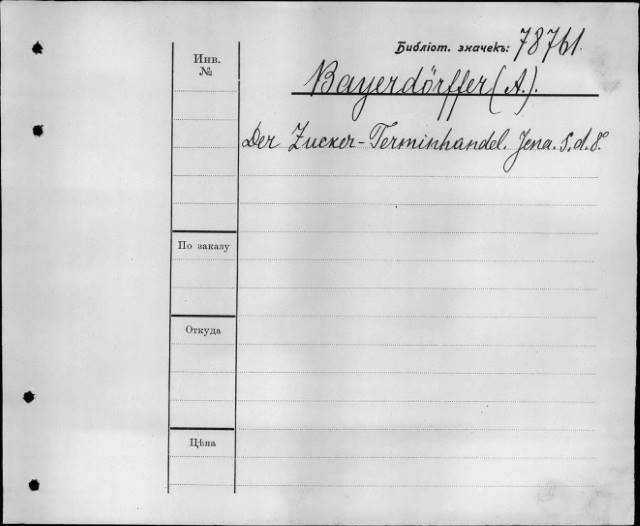 Библіот. значекъ: 78761.
Инв.
№
Bayerdörffer (A.).
Der Zucker-Terminhandel. Jena. s. d. 8.
По заказу
Откуда
Цѣна